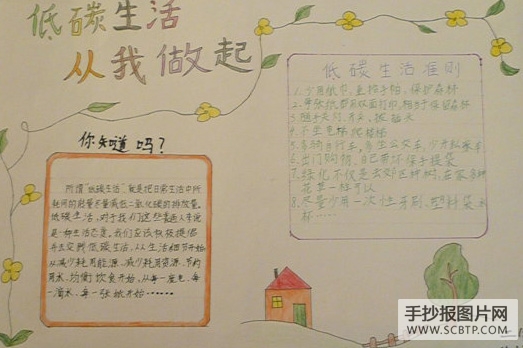 低碳生活
从我做起
你知道吗?
所谓"低碳生活"就是把日常生活中所
耗用的能量尽量减低二氧化碳的排放量。
低碳生活,对于我们这些普通人来说
是一种生活态度。我们应该积极提倡
并去实践低碳生活,从生活细节开始
从减少耗用能源、减少耗用资源、节约
用水、均衡饮食开始,从每一度电、每
一滴水、每一张纸开始······
低碳生活准则
1.少用纸巾,重拾手帕,保护森林
2.每张纸都双面打印,相当于保留森林
3.随手关灯、开关、拔插头
4.不坐电梯爬楼梯
5.多骑自行车,多坐公交车,少开私家车
6.出门购物,自己带环保手提袋
7.绿化不仅是去郊区种树,在家多种
花草一样可以
8.尽量少用一次性牙刷、塑料袋、水
杯·····
手抄报图片网
WWW.SCBTP.COM